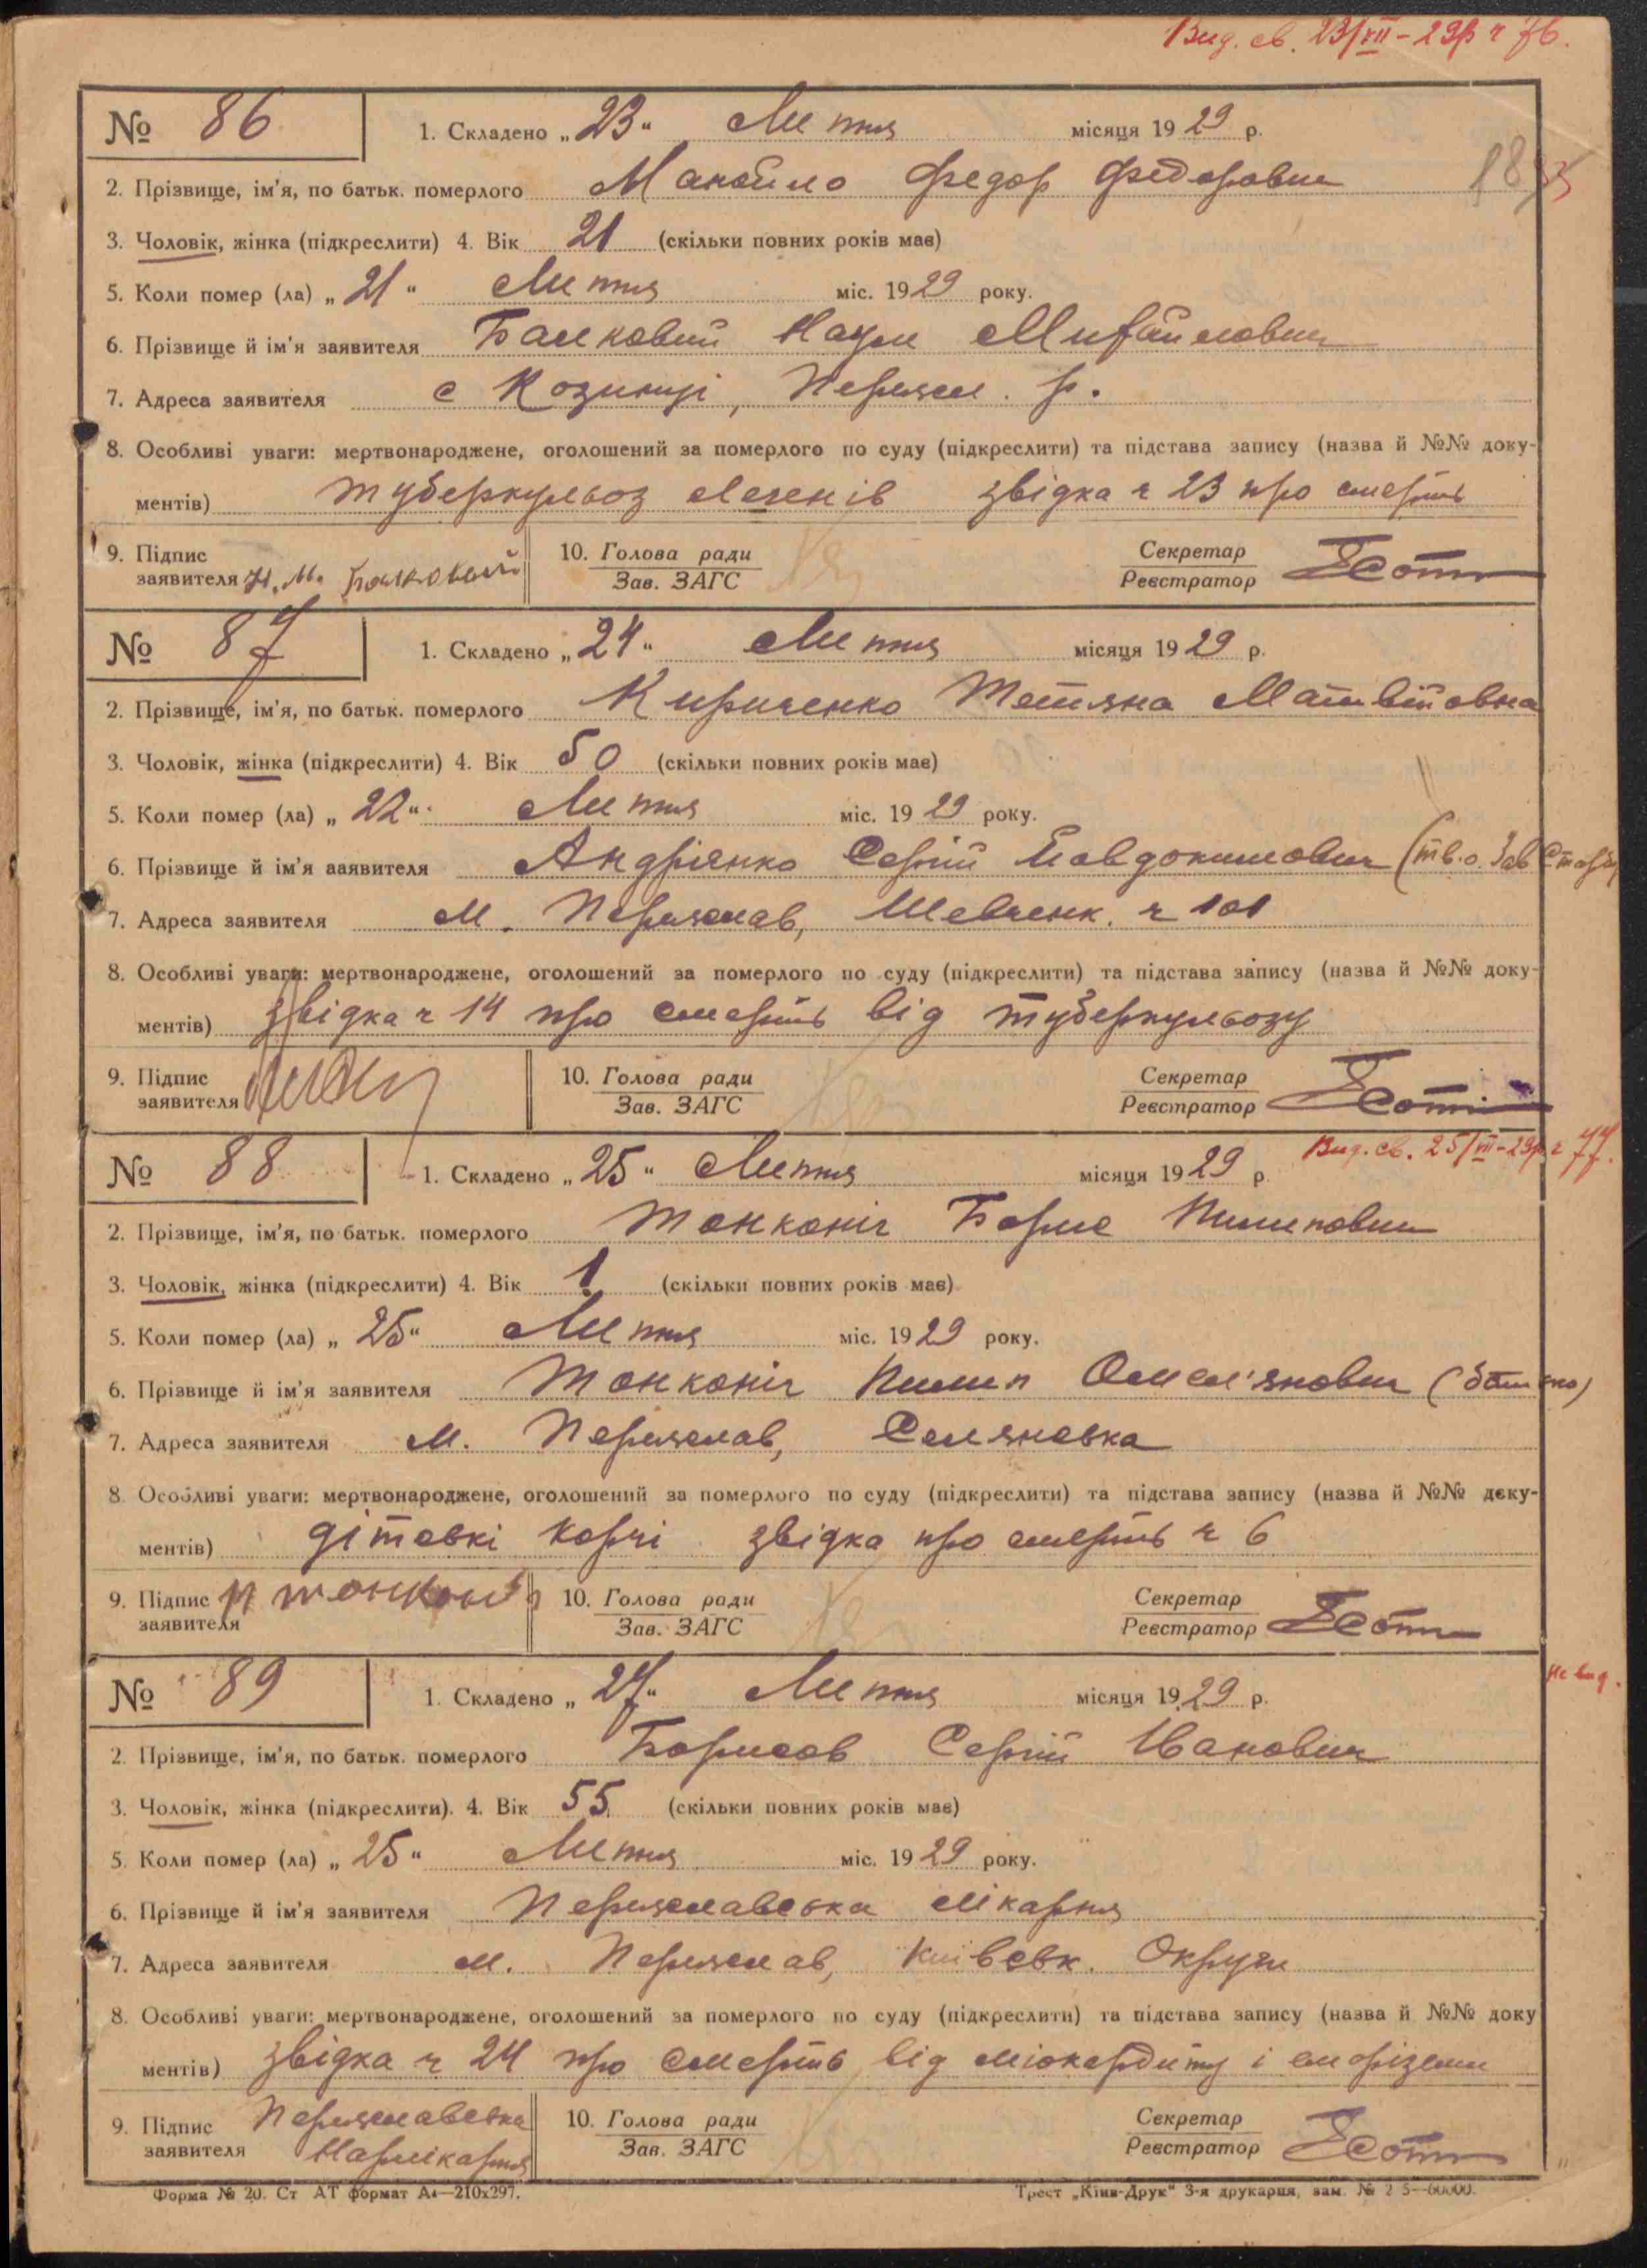 Вид. св. 23/VII-29р ч 76.
№ 86 1. Складено „23“ Липня місяця 1929 р.
2. Прізвище, ім'я, по батьк. померлого Манойло Федор Федорович
3. Чоловік, жінка (підкреслити) 4. Вік 21 (скільки повних років має)
5. Коли помер (ла) „21“ Липня міс. 1929 року.
6. Прізвище й ім'я заявителя Балковий Наум Михайлович
7. Адреса заявителя с Козинці, Переясл. р.
8. Особливі уваги: мертвонароджене, оголошений за померлого по суду (підкреслити) та підстава запису (назва й №№ доку-
ментів) туберкульоз легенів звідка ч 23 про смерть
9. Підпис заявителя Н. М. Балковый 10. Голова ради Зав. ЗАГС Секретар Реєстратор
№ 87 1. Складено „24“ Липня місяця 1929 р.
2. Прізвище, ім'я, по батьк. померлого Кириченко Тетяна Матвійовна
3. Чоловік, жінка (підкреслити) 4. Вік 50 (скільки повних років має)
5. Коли помер (ла) „22“ Липня міс. 1929 року.
6. Прізвище й ім'я заявителя Андрієнко Сергій Явдокимович (тв.о. Зав
7. Адреса заявителя м. Переяслав, Шевченк. ч 101
8. Особливі уваги: мертвонароджене, оголошений за померлого по суду (підкреслити) та підстава запису (назва й №№ доку-
ментів) звідка ч 14 про смерть від туберкульозу
9. Підпис заявителя 10. Голова ради Зав. ЗАГС Секретар Реєстратор
Вид. св. 25/VII-29р ч 77.
№ 88 1. Складено „25“ Липня місяця 1929 р.
2. Прізвище, ім'я, по батьк. померлого Тонконіг Борис Пилипович
3. Чоловік, жінка (підкреслити) 4. Вік 1 (скільки повних років має)
5. Коли помер (ла) „25“ Липня міс. 1929 року.
6. Прізвище й ім'я заявителя Тонконіг Пилип Омел'янович (батько)
7. Адреса заявителя м. Переяслав,
8. Особливі уваги: мертвонароджене, оголошений за померлого по суду (підкреслити) та підстава запису (назва й №№ доку-
ментів) дітовкі корчі звідка про смерть ч 6
9. Підпис заявителя П Тонконіг 10. Голова ради Зав. ЗАГС Секретар Реєстратор
Не вид.
№ 89 1. Складено „27“ Липня місяця 1929 р.
2. Прізвище, ім'я, по батьк. померлого Борисов Сергій Іванович
3. Чоловік, жінка (підкреслити). 4. Вік 55 (скільки повних років має)
5. Коли помер (ла) „25“ Липня міс. 1929 року.
6. Прізвище й ім'я заявителя Переяславська лікарня
7. Адреса заявителя м. Переяслав, Київськ. Округи
8. Особливі уваги: мертвонароджене, оголошений за померлого по суду (підкреслити) та підстава запису (назва й №№ доку
ментів) звідка ч 24 про смерть від міокардиту і емфіземи
9. Підпис заявителя Переяславська Нарлікарня 10. Голова ради Зав. ЗАГС Секретар Реєстратор
Форма № 20. Ст АТ формат А4—210х297. Трест „Київ-Друк“ 3-я друкарня, зам. №